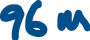 96 m